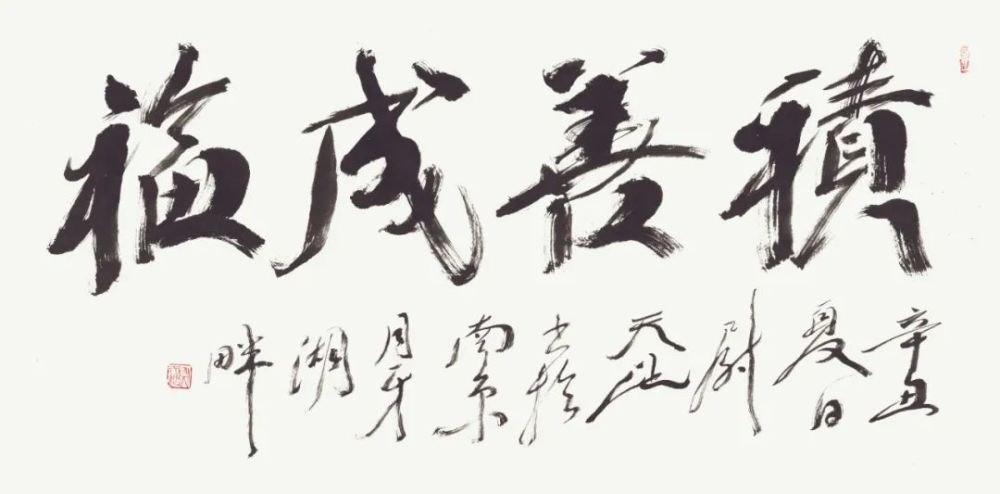 積善成福
辛丑夏日尉天池书于南京月牙湖畔